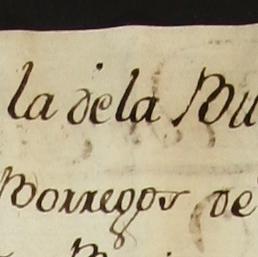 la de la Bu
Borregos de